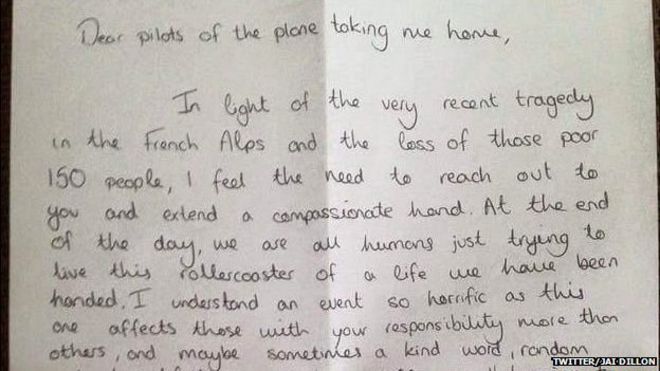 Dear pilots of the plane taking me home,
In light of the very recent tragedy
in the French Alps and the loss of those poor
150 people, I feel the need to reach out to
you and extend a compassionate hand. At the end
of the day, we are all humans just trying to
live this rollercoaster of a life we have been
handed. I understand an event so horrific as this
one affects those with your responsibility more than
others, and maybe sometimes a kind word, random
TWITTER/JAI DILLON